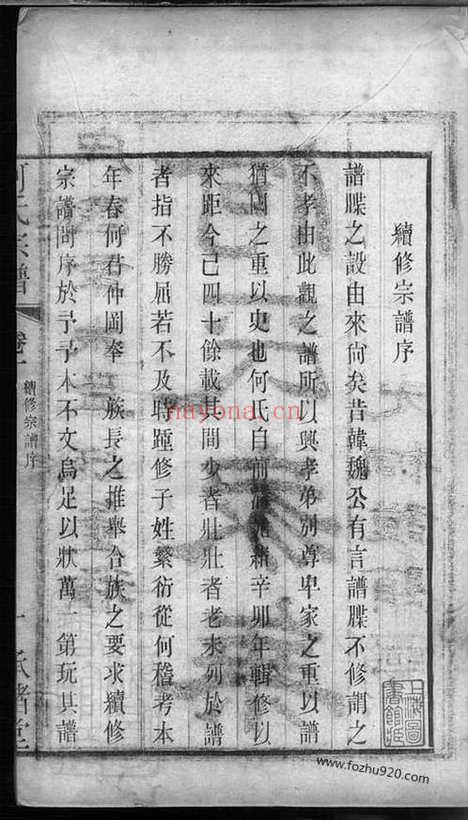 續修宗譜序
譜牒之設由來尙矣昔韓魏公有言譜牒不修謂之
不孝由此觀之譜所以興孝弟別尊卑家之重以譜
猶國之重以史也何氏自前清光緒辛卯年輯修以
來距今已四十餘載其間少者壯壯者老未列於譜
者指不勝屈若不及時踵修子姓繁衍從何稽考本
年春何君仲岡奉 族長之推舉合族之要求續修
宗譜問序於予予本不文烏足以狀萬一第玩其譜
何氏宗譜 卷一 續修宗譜序 一
上海圖書館藏
nayona.cn
www.fozhu920.com